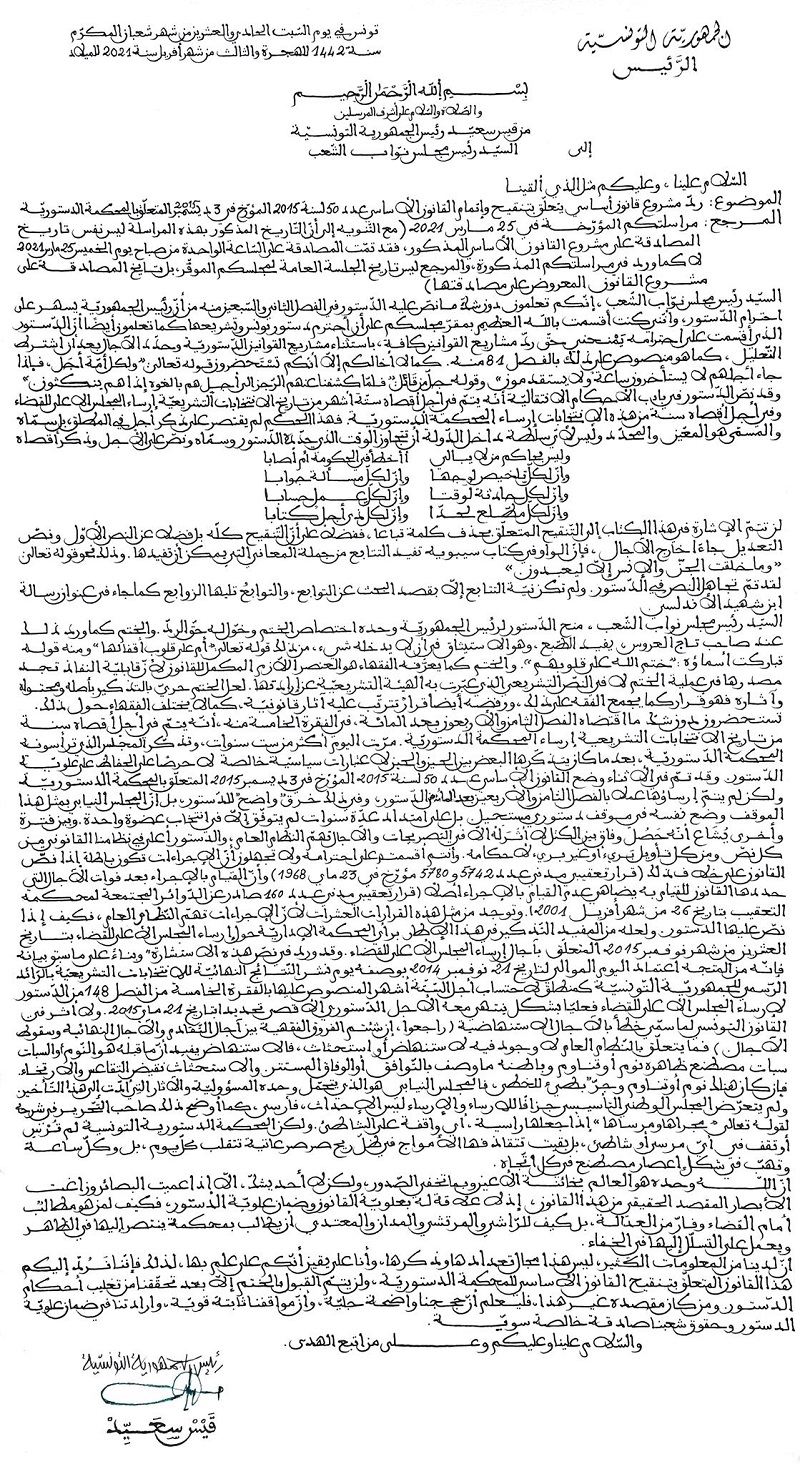 الجمهورية التونسية
الرئيس
تونس في يوم السبت الحادي والعشرين من شهر شعبان المكرم
سنة 1442 للهجرة والثالث من شهر أفريل سنة 2021 للميلاد
بسم الله الرحمن الرحيم
والصلاة والسلام على أشرف المرسلين
من قيس سعيد رئيس الجمهورية التونسية
إلى السيد رئيس مجلس نواب الشعب
السلام علينا، وعليكم مثل الذي ألقينا
الموضوع: رد مشروع قانون أساسي يتعلق بتنقيح وإتمام القانون الأساسي عدد 50 لسنة 2015 المؤرخ في 3 ديسمبر 2015 المتعلق بالمحكمة الدستورية
المرجع: مراسلتكم المؤرخة في 25 مارس 2021 (مع التنويه إلى أن التاريخ المذكور بهذه المراسلة ليس نفس تاريخ
المصادقة على مشروع القانون الأساسي المذكور، فقد تمت المصادقة على الساعة الواحدة من صباح يوم الخميس 25 مارس 2021
لا كما ورد في مراسلتكم المذكورة، والمرجع ليس تاريخ الجلسة العامة لمجلسكم الموقر، بل تاريخ المصادقة على
مشروع القانون المعروض على مصادقتها)
السيد رئيس مجلس نواب الشعب، إنكم تعلمون دون شك ما نص عليه الدستور في الفصل الثاني والسبعين منه من أن رئيس الجمهورية يسهر على
احترام الدستور، وأنني كنت أقسمت بالله العظيم بمقر مجلسكم على أن أحترم دستور تونس وتشريعها كما تعلمون أيضا أن الدستور
الذي أقسمت على احترامه يمنحني حق رد مشاريع القوانين كافة، باستثناء مشاريع القوانين الدستورية وحدد الآجال بعد أن اشترط
التعليل، كما هو منصوص على ذلك بالفصل 81 منه. كما لا أخالكم إلا أنكم تستحضرون قوله تعالى "ولكل أمة أجل، فإذا
جاء أجلهم لا يستأخرون ساعة ولا يستقدمون" وقوله جل من قائل "فلما كشفنا عنهم الرجز إلى أجل هم بالغوه إذا هم ينكثون"
وقد نص الدستور في باب الأحكام الانتقالية أنه يتم في أجل أقصاه ستة أشهر من تاريخ الانتخابات التشريعية إرساء المجلس الأعلى للقضاء
وفي أجل أقصاه سنة من هذه الانتخابات إرساء المحكمة الدستورية. فهذا الحكم لم يقتصر على ذكر أجل في المطلق بل سماه
والمسمى هو المعين والمحدد وليس لأي سلطة داخل الدولة أن تتجاوز الوقت الذي حدده الدستور وسماه ونص على الأجل وذكر أقصاه
وليس بحاكم من لا يبالي أأخطأ في الحكومة أم أصابا
وإن لكل تلخيص لوجها وإن لكل مسألة جوابا
وإن لكل حادثة لوقتا وإن لكل عمل حسابا
وإن لكل مطلع لحدا وإن لكل ذي أجل كتابا
لن تتم الإشارة في هذا الكتاب إلى التنقيح المتعلق بحذف كلمة تباعا، ففضلا على أن التنقيح كله بل فضلا عن النص الأول ونص
التعديل جاءا خارج الآجال، فإن الواو في كتاب سيبويه تفيد التتابع من جملة المعاني التي يمكن أن تفيدها. وذلك نحو قوله تعالى
"وما خلقت الجن والإنس إلا ليعبدون"
لقد تم تجاهل النص في الدستور. ولم تكن نية التتابع إلا بقصد البحث عن التوابع، والتوابع تليها الزوابع كما جاء في عنوان رسالة
ابن شهيد الأندلسي
السيد رئيس مجلس نواب الشعب، منح الدستور لرئيس الجمهورية وحده اختصاص الختم وخول له حق الرد. والختم كما ورد ذلك
عند صاحب تاج العروس، يفيد الطبع، وهو الاستيثاق من أن لا يدخله شيء، من ذلك قوله تعالى "أم على قلوب أقفالها" ومنه قوله
تباركت أسماؤه: "ختم الله على قلوبهم". والختم كما يعرفه الفقهاء هو العنصر اللازم المكمل للقانون لأن قابلية النفاذ تجد
مصدرها في عملية الختم لا في النص التشريعي الذي عبرت به الهيئة التشريعية عن إرادتها. لعل الختم حري بالتذكير بأصله ومحتواه
وآثاره فهو قرار كما يجمع الفقه على ذلك، ورفضه أيضا قرار تترتب عليه آثار قانونية. كما لا يختلف الفقهاء حول ذلك.
تستحضرون دون شك ما اقتضاه الفصل الثامن والأربعون بعد المائة، في الفقرة الخامسة منه، أنه يتم في أجل أقصاه سنة
من تاريخ الانتخابات التشريعية إرساء المحكمة الدستورية. مرت اليوم أكثر من ست سنوات، وتذكر المجلس الذي ترأسونه
المحكمة الدستورية، بعدما كان يتذكرها البعض بين الحين والحين لاعتبارات سياسية خالصة لا حرصا على الحفاظ على علوية
الدستور. وقد تم في الأثناء وضع القانون الأساسي عدد 50 لسنة 2015 المؤرخ في 3 ديسمبر 2015 المتعلق بالمحكمة الدستورية
ولكن لم يتم إرساؤها عملا بالفصل الثامن والأربعين بعد المائة من الدستور، وفي ذلك خرق واضح للدستور، بل إن المجلس النيابي بمثل هذا
الموقف وضع نفسه في موقف دستوري مستحيل بل على امتداد عدة سنوات لم يتوفق إلا في انتخاب عضوة واحدة. وبين فترة
وأخرى يشاع أنه حصل وفاق بين الكتل لا أثر له إلا في التصريحات والآجال تهم النظام العام، والدستور أعلى في نظامنا القانوني من
كل نص ومن كل تأويل بريء أو غير بريء لأحكامه. وأنتم أقسمتم على احترامه ولا تجهلون أن الإجراءات تكون باطلة إذا نص
القانون على خلاف ذلك (قرار تعقيبي مدني عدد 5742 و5780 مؤرخ في 23 ماي 1968) وأن القيام بالإجراء بعد فوات الآجال التي
حددها القانون للقيام به يضاهي عدم القيام بالإجراء أصلا (قرار تعقيبي مدني عدد 160 صادر عن الدوائر المجتمعة لمحكمة
التعقيب بتاريخ 26 من شهر أفريل 2001). وتوجد من مثل هذه القرارات العشرات لأن الإجراءات تهم النظام العام، فكيف إذا
نص عليها الدستور. ولعله من المفيد التذكير في هذا الإطار برأي المحكمة الإدارية حول إرساء المجلس الأعلى للقضاء بتاريخ
العشرين من شهر نوفمبر 2015 المتعلق بآجال إرساء المجلس الأعلى للقضاء. وقد ورد في نص هذه الاستشارة "وبناء على ما سبق بيانه
فإنه من المتجه اعتماد اليوم الموالي لتاريخ 21 نوفمبر 2014 بوصفه يوم نشر النتائج النهائية للانتخابات التشريعية بالرائد
الرسمي للجمهورية التونسية كمنطلق لاحتساب أجل الستة أشهر المنصوص عليها بالفقرة الخامسة من الفصل 148 من الدستور
لإرساء المجلس الأعلى للقضاء فعليا بشكل ينتهي معه الأجل الدستوري الأقصى تحديدا بتاريخ 21 ماي 2015. ولا أثر في
القانون التونسي لما سمي خطأ بالآجال الاستنهاضية (راجعوا، إن شئتم الفروق الفقهية بين آجال التقادم والآجال النهائية وسقوط
الآجال) فما يتعلق بالنظام العام لا وجود فيه لاستنهاض أو استحثاث، فالاستنهاض يفيد أن ما قبله هو النوم أو السبات
سبات مصطنع ظاهره نوم أو تناوم وباطنه ما وصف بالتوافق أو الوفاق المستتر. والاستحثاث نقيض التقاعس والارتخاء.
فإن كان هنالك نوم أو تناوم وجري بطيء للخطى، فالمجلس النيابي هو الذي يتحمل وحده المسؤولية والآثار التي أدت إلى هذا التأخير
ولم يتعرض المجلس الوطني التأسيسي جزافا للإرساء والإرساء ليس الإحداث، فأرسى، كما أوضح ذلك صاحب التحرير في شرحه
لقوله تعالى "مجراها ومرساها" إذا جعلها راسية، أي واقفة على الشاطئ. ولكن المحكمة الدستورية التونسية لم ترس
أو تقف في أي مرسى أو شاطئ، بل بقيت تتقاذفها الأمواج في ظل ريح صرصر عاتية تتقلب كل يوم، بل وكل ساعة
وتهب في شكل إعصار مصطنع في كل اتجاه.
إن الله وحده هو العالم بخائنة الأعين وبما تخفي الصدور، ولكن لا أحد يشك، إلا إذا عميت البصائر وزاغت
الأبصار المقصد الحقيقي من هذا القانون، إذ لا علاقة له بعلوية القانون وضمان علوية الدستور، فكيف لمن هو مطالب
أمام القضاء وفار من العدالة، بل كيف للراشي والمرتشي والمدان والمعتدي أن يطالب بمحكمة ينتصر إليها في الظاهر
ويعمل على التسلل إليها في الخفاء.
إن لدينا من المعلومات الكثير، ليس هذا مجال تعدادها وذكرها، وأنا على يقين أنكم على علم بها، لذلك فإننا نرد إليكم
هذا القانون المتعلق بتنقيح القانون الأساسي للمحكمة الدستورية، ولن يتم القبول بالختم إلا بعد تحققنا من تغليب أحكام
الدستور. ومن كان مقصده غير هذا، فليعلم أن حججنا واضحة جلية، وأن مواقفنا ثابتة قوية، وإرادتنا في ضمان علوية
الدستور وحقوق شعبنا صادقة خالصة سوية.
والسلام علينا وعليكم وعلى من اتبع الهدى.
رئيس الجمهورية التونسية
قيس سعيد